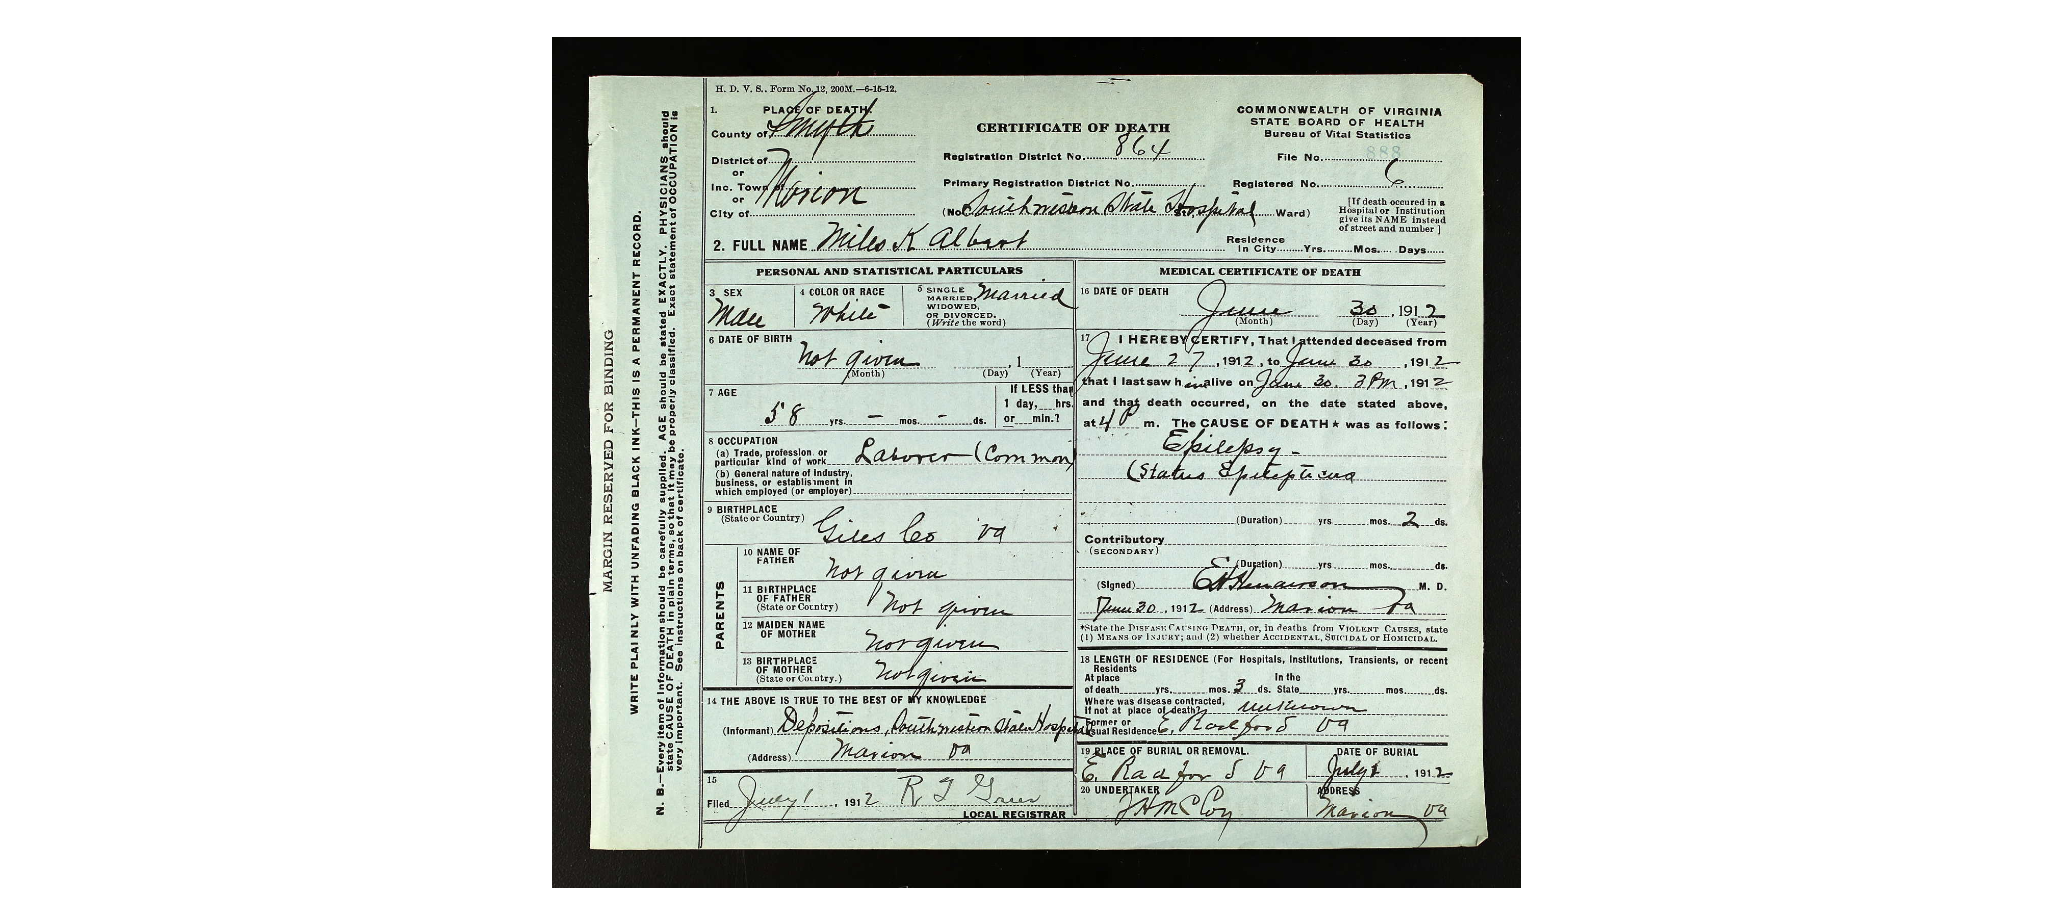 H. D. V. S.. Form No. 12, 200M.—6-15-12.
1. PLACE OF DEATH.
County of Smyth
District of
or
Inc. Town of Marion
or
City of
CERTIFICATE OF DEATH
Registration District No. 864
Primary Registration District No.
(No. Southwestern State Hospital St. Ward)
COMMONWEALTH OF VIRGINIA
STATE BOARD OF HEALTH
Bureau of Vital Statistics
File No. 888
Registered No. 6
[If death occured in a
Hospital or Institution
give its NAME instead
of street and number ]
2. FULL NAME Miles K Albert
Residence
In City Yrs. Mos. Days
PERSONAL AND STATISTICAL PARTICULARS
3 SEX
Male
4 COLOR OR RACE
White
5 SINGLE
MARRIED,
WIDOWED,
OR DIVORCED.
(Write the word)
Married
6 DATE OF BIRTH
Not given , 1
(Month) (Day) (Year)
7 AGE
58 yrs. – mos. – ds.
If LESS than
1 day, hrs.
or min.?
8 OCCUPATION
(a) Trade, profession, or
particular kind of work Laborer (Common)
(b) General nature of Industry,
business, or establishment in
which employed (or employer)
9 BIRTHPLACE
(State or Country)
Giles Co Va
PARENTS
10 NAME OF
FATHER
Not given
11 BIRTHPLACE
OF FATHER
(State or Country)
Not given
12 MAIDEN NAME
OF MOTHER
Not given
13 BIRTHPLACE
OF MOTHER
(State or Country.)
Not given
14 THE ABOVE IS TRUE TO THE BEST OF MY KNOWLEDGE
(Informant) Depositions, Southwestern State Hospital
(Address) Marion Va
15
Filed July 1, 1912 R T Greer
LOCAL REGISTRAR
MEDICAL CERTIFICATE OF DEATH
16 DATE OF DEATH
June 30, 1912
(Month) (Day) (Year)
17 I HEREBY CERTIFY, That I attended deceased from
June 27, 1912, to June 30, 1912
that I last saw him alive on June 30. 3 PM, 1912
and that death occurred, on the date stated above,
at 4 P m. The CAUSE OF DEATH* was as follows:
Epilepsy -
(Status Epilepticus
(Duration) yrs mos. 2 ds.
Contributory
(SECONDARY)
(Duration) yrs mos. ds.
(Signed) E H Henderson M. D.
June 30, 1912 (Address) Marion Va
*State the DISEASE CAUSING DEATH, or, in deaths from VIOLENT CAUSES, state
(1) MEANS OF INJURY; and (2) whether ACCIDENTAL, SUICIDAL or HOMICIDAL.
18 LENGTH OF RESIDENCE (For Hospitals, Institutions, Transients, or recent
Residents
At place In the
of death yrs. mos. 3 ds. State yrs. mos. ds.
Where was disease contracted,
if not at place of death? unknown
Former or
usual Residence E. Radford Va
19 PLACE OF BURIAL OR REMOVAL.
E. Radford Va
DATE OF BURIAL
July 1, 1912
20 UNDERTAKER
J H McCoy
ADDRESS
Marion Va
MARGIN RESERVED FOR BINDING
WRITE PLAINLY WITH UNFADING BLACK INK—THIS IS A PERMANENT RECORD.
N. B.—Every item of information should be carefully supplied. AGE should be stated EXACTLY. PHYSICIANS should
state CAUSE OF DEATH in plain terms, so that it may be properly classified. Exact statement of OCCUPATION is
very important. See instructions on back of certificate.